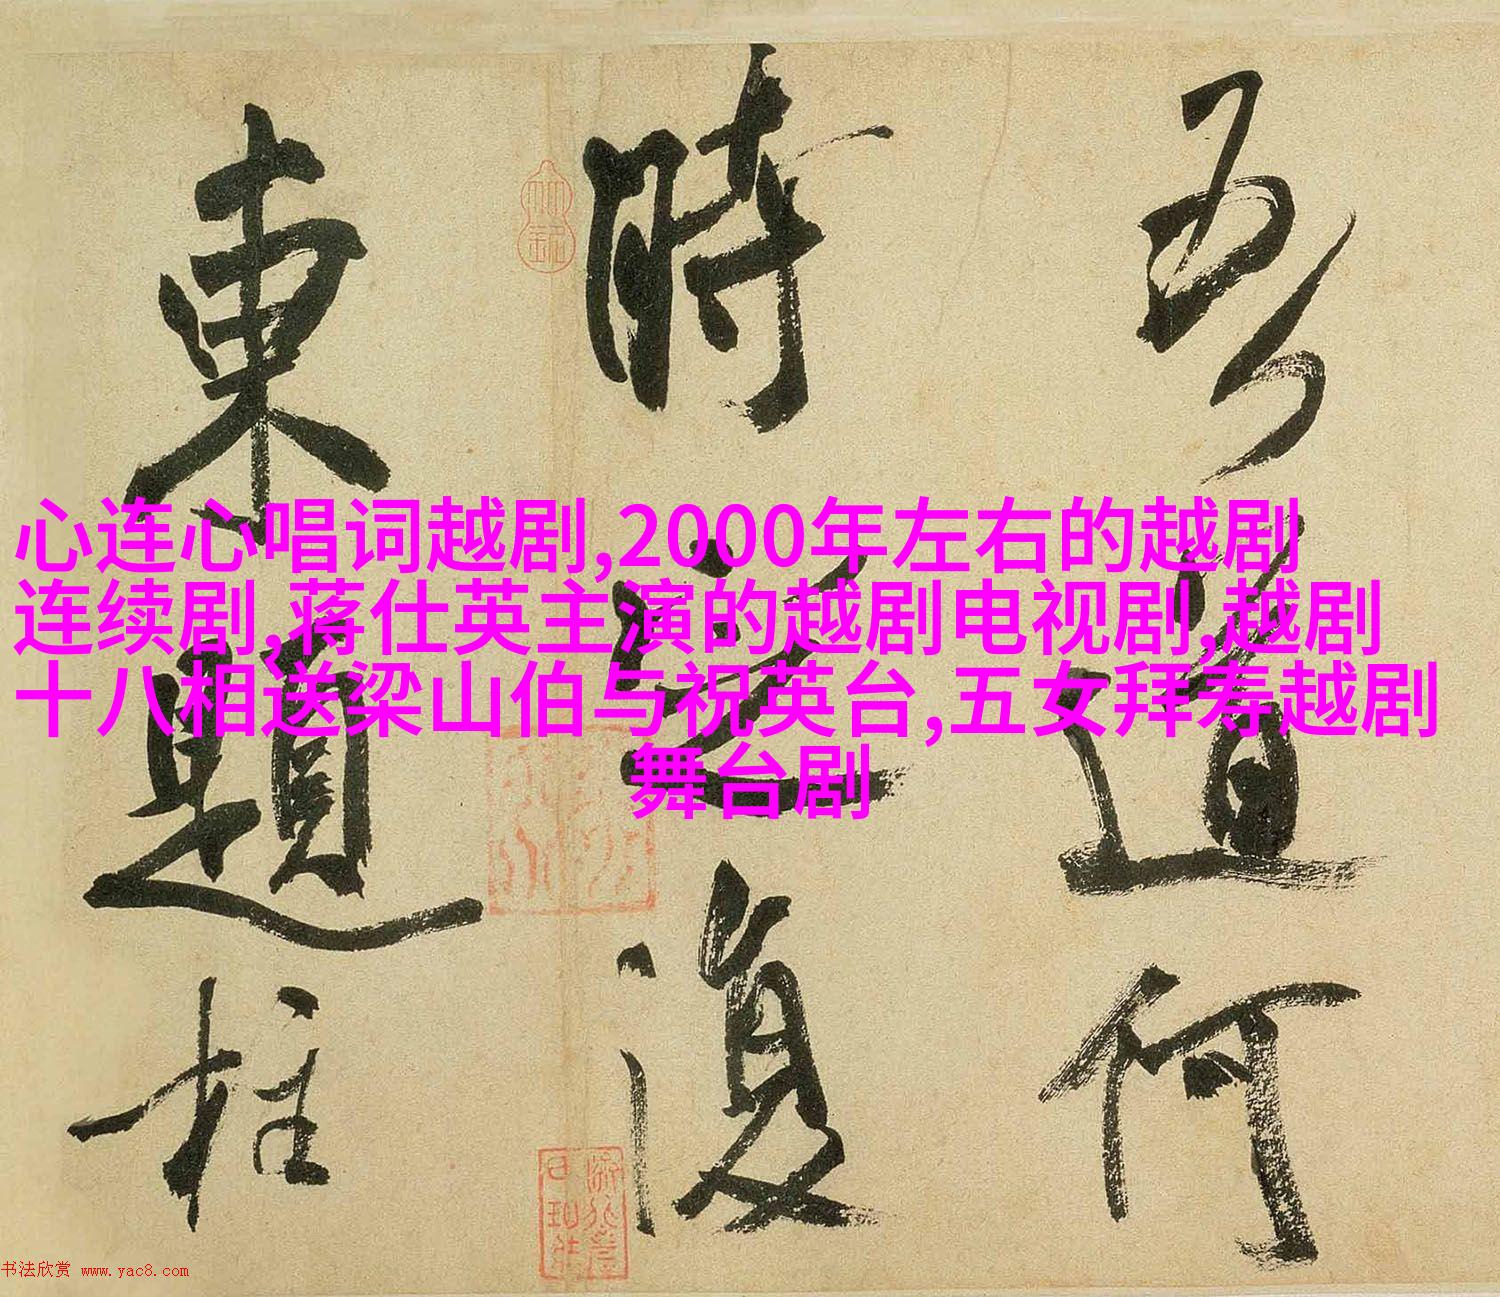 心连心唱词越剧,2000年左右的越剧
连续剧,蒋仕英主演的越剧电视剧,越剧
十八相送梁山伯与祝英台,五女拜寿越剧
舞台剧
吾道何
時之復
東題柱
书法欣赏 www.yac8.com